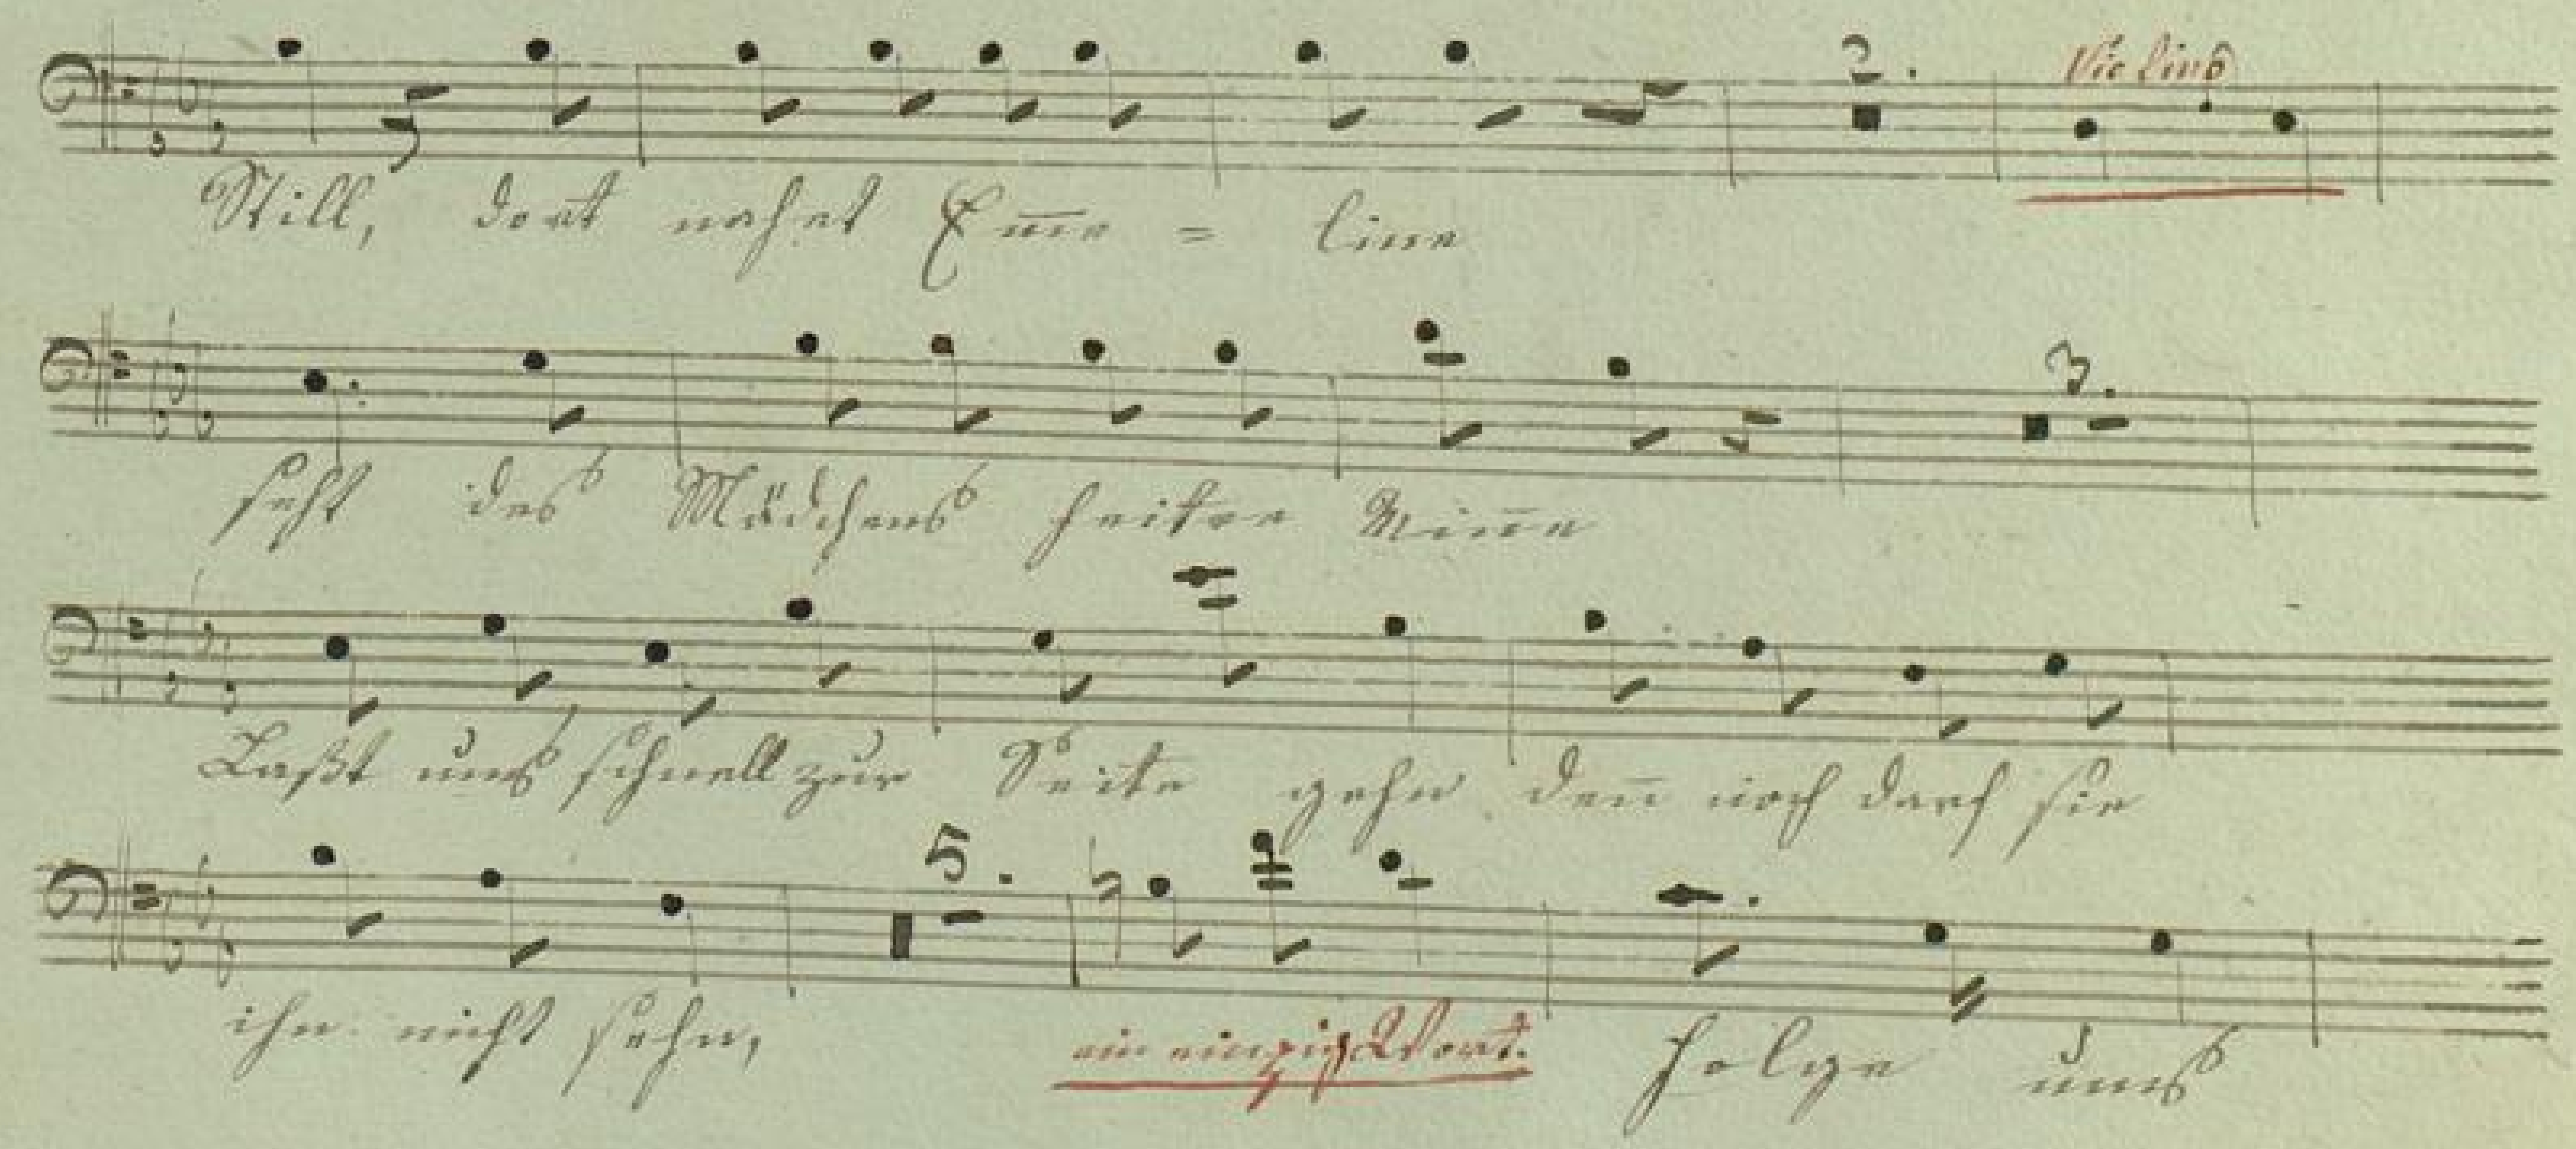 2.
Violins
Still, dort nahet Em̅e = line
3.
seht des Mädchens heitre Min̅e
Laßt uns schnell zur Seite gehn den̅ noch darf sie
5.
ihn nicht sehn, ein einzig Wort. folge uns